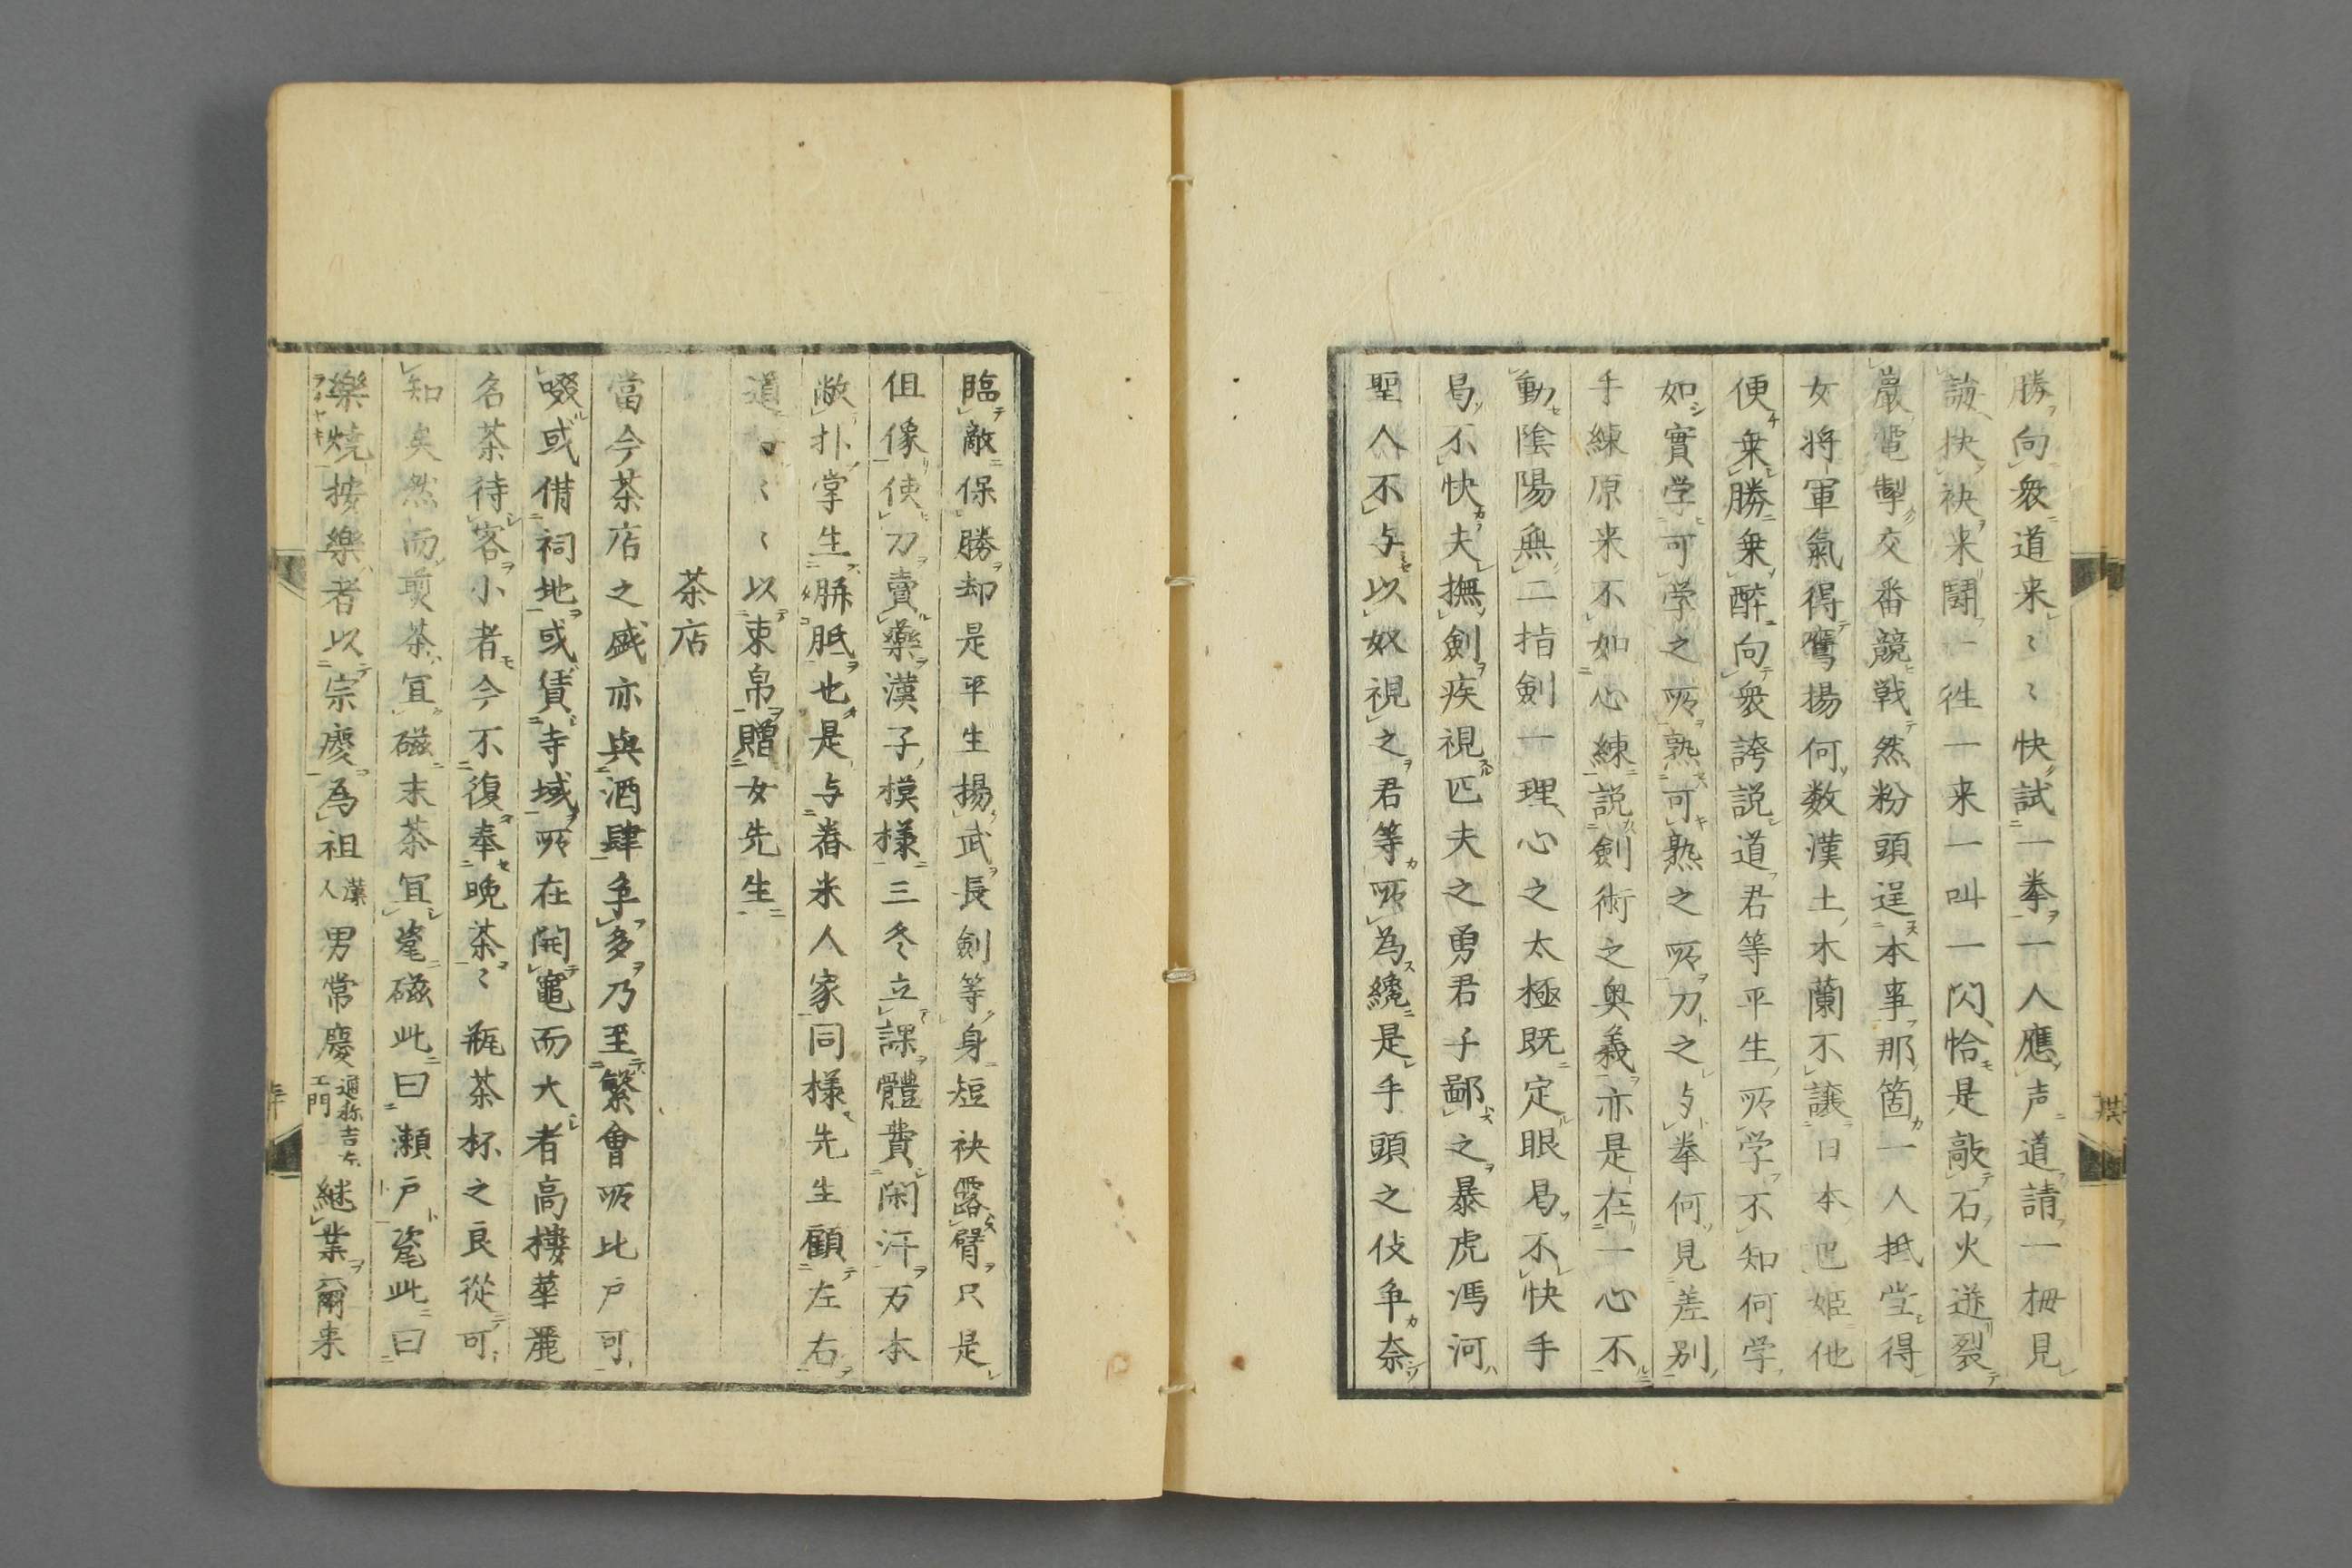 勝向衆道来〻〻快試一拳一人應声道請一拇見
論抉袂来闘一徃一来一叫一閃恰是敲石火迸裂
巖電掣交番競戦然粉頭逞本事那箇一人抵堂得
女将軍氣得鷹揚何数漢土木蘭不譲日本巴姫他
便乗勝乗酔向衆誇説道君等平生所学不知何学
如實学可学之所熟可熟之所刀之与拳何見差別
手練原来不如心練説劍術之奥義亦是在一心不
動陰陽無二指劍一理心之太極既定眼曷不快手
曷不快夫撫劍疾視匹夫之勇君子鄙之暴虎馮河
聖人不与以奴視之君等所為纔是手頭之伎争奈
臨敵保勝却是平生揚武長劍等身短袂露臂只是
但像使刀賣藥漢子模様三冬立課體費閑汗万本
敝扑掌生胼胝也是与舂米人家同様先生顧左右
道〻〻以束帛贈女先生
茶店
當今茶店之盛亦與酒肆争多乃至繁會所比戸可
啜或借祠地或賃寺域所在開竃而大者高樓華麗
名茶待客小者今不復奉晩茶〻瓶茶杯之良從可
知矣然而煎茶冝磁末茶冝瓷磁此曰瀬戸瓷此曰
樂焼按樂者以宗慶為祖漢人男常慶通称吉左エ門継業爾来